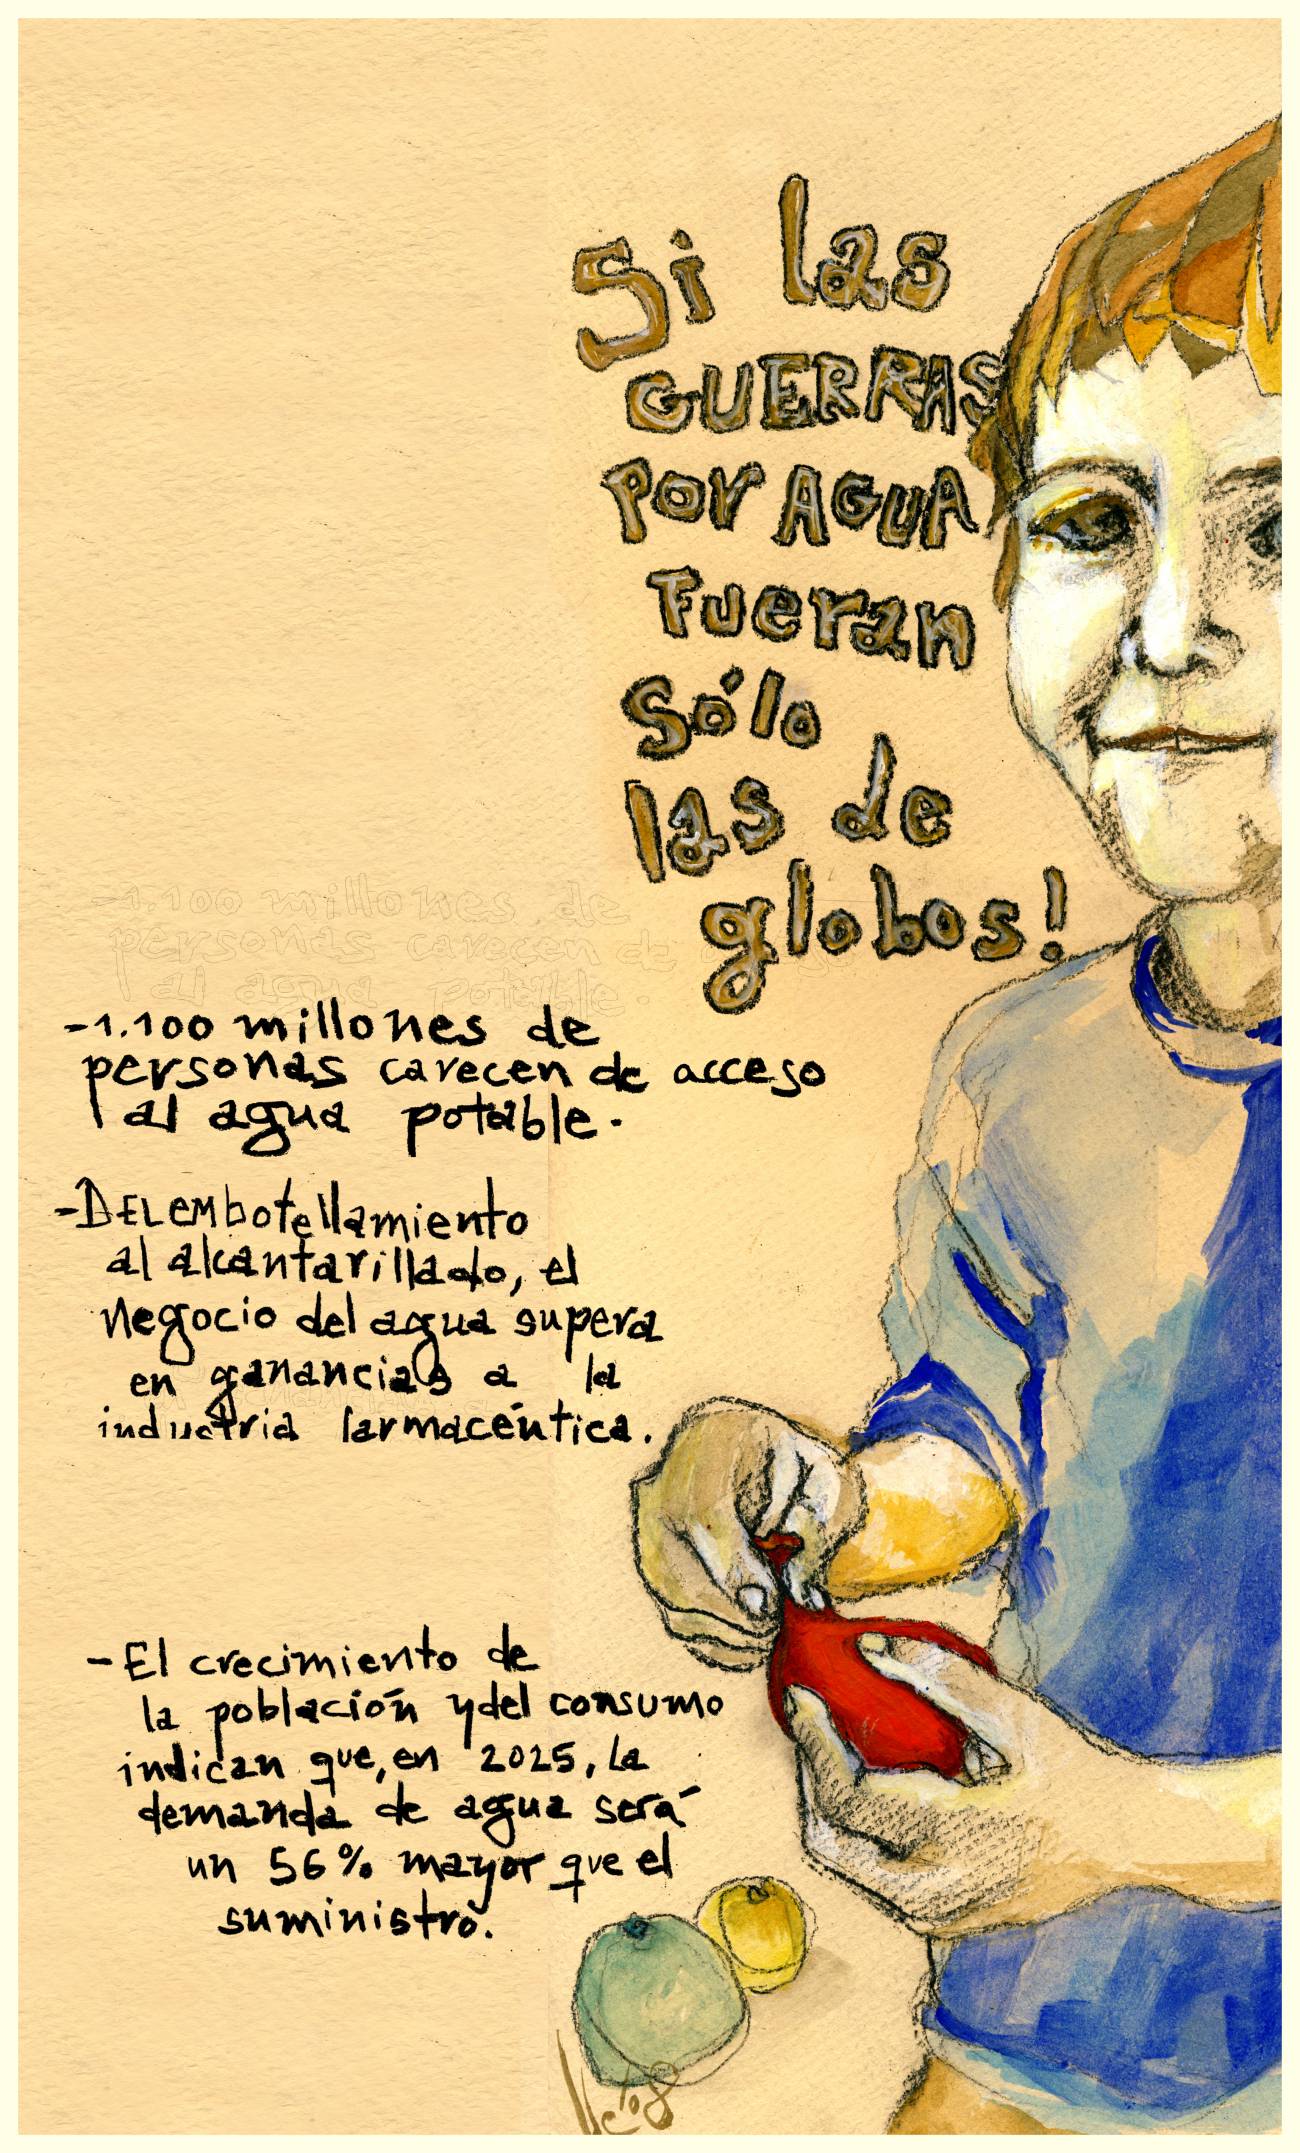 Si las
GUERRAS
POR AGUA
Fueran
Sólo
las de
globos!
-1.100 millones de
personas carecen de acceso
al agua potable.
-DEL EMbotellamiento
al alcantarillado, el
negocio del agua supera
en ganancias a la
industria farmacéutica.
-El crecimiento de
la población y del consumo
indican que, en 2025, la
demanda de agua será
un 56% mayor que el
suministro.